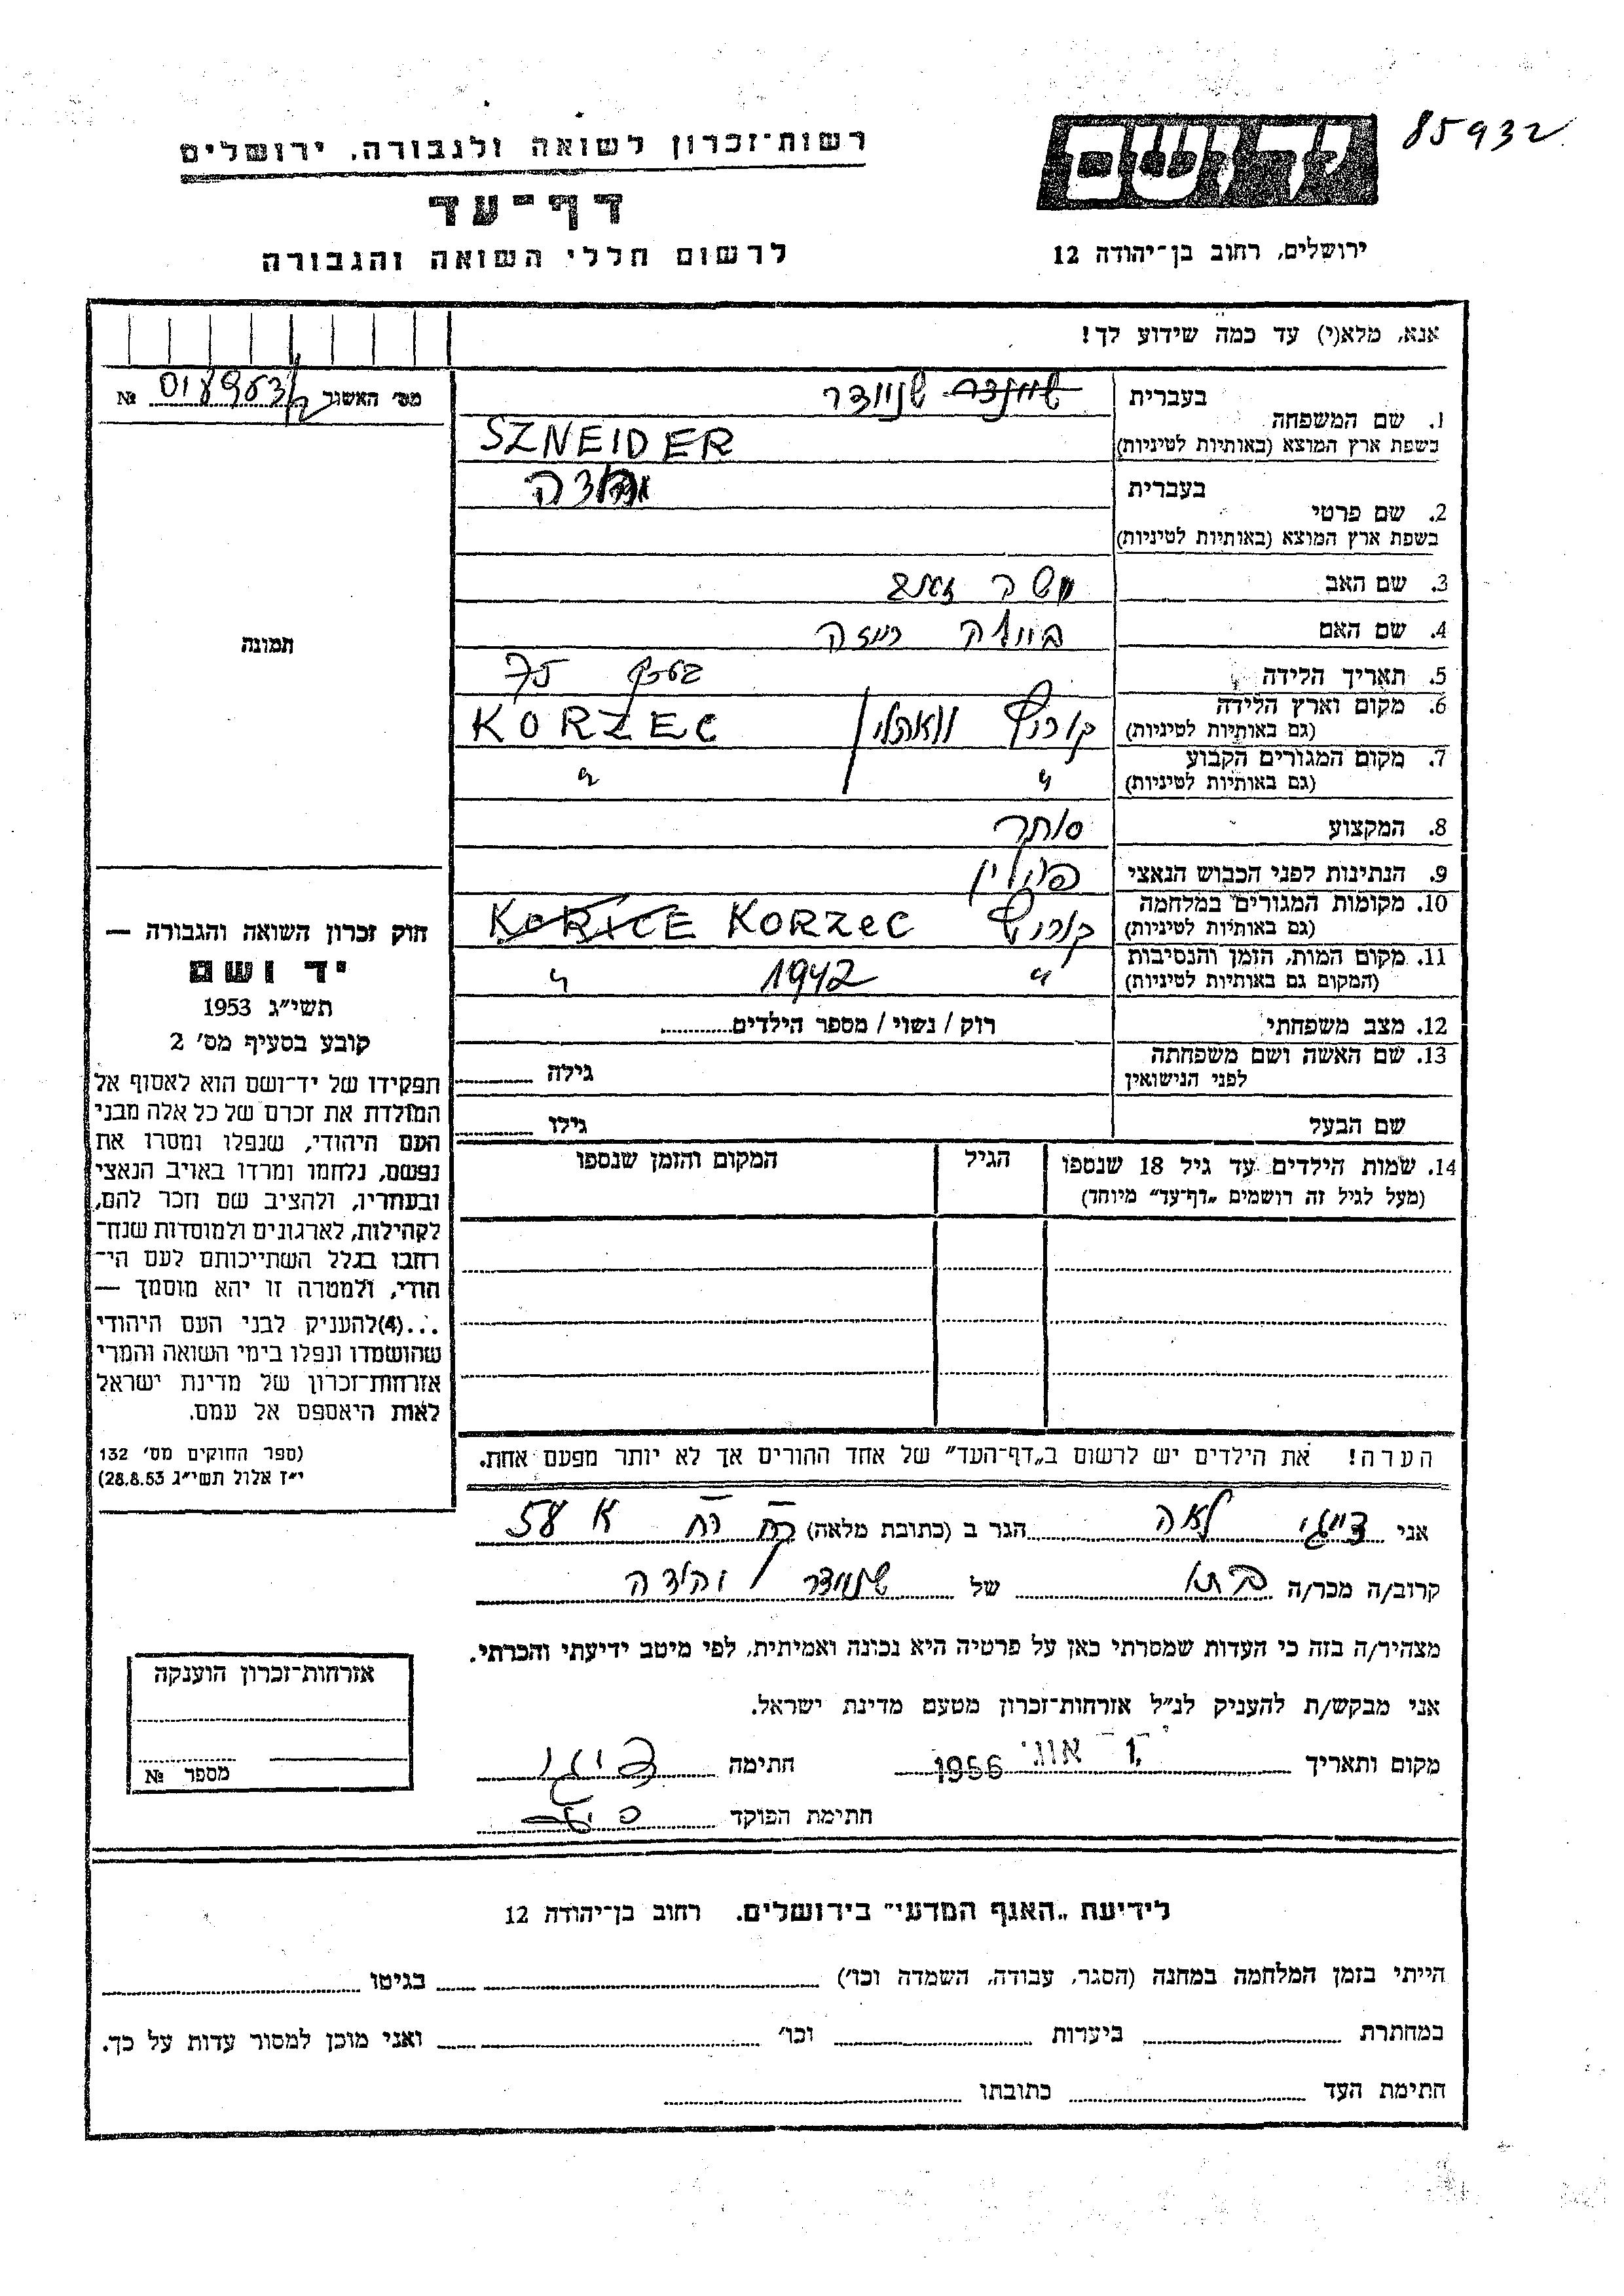 85932
יד ושם
רשות־זכרון לשואה ולגבורה, ירושלים
דף־עד
לרשום חללי השואה והגבורה
ירושלים, רחוב בן־יהודה 12
אנא, מלא(י) עד כמה שידוע לך!
מס׳ האשור №
1. שם המשפחה
בעברית שניידר
בשפת ארץ המוצא (באותיות לטיניות) SZNEIDER
2. שם פרטי
בעברית
בשפת ארץ המוצא (באותיות לטיניות)
3. שם האב משה
4. שם האם
5. תאריך הלידה 75
6. מקום וארץ הלידה
(גם באותיות לטיניות) קוריץ KORZEC
7. מקום המגורים הקבוע
(גם באותיות לטיניות) " "
8. המקצוע סוחר
9. הנתינות לפני הכבוש הנאצי פולין
10. מקומות המגורים במלחמה
(גם באותיות לטיניות) קוריץ KORZEC KORICE
11. מקום המות, הזמן והנסיבות
(המקום גם באותיות לטיניות) " 1942 "
12. מצב משפחתי רוק / נשוי / מספר הילדים
13. שם האשה ושם משפחתה
לפני הנישואין גילה
שם הבעל גילו
14. שמות הילדים עד גיל 18 שנספו
(מעל לגיל זה רושמים „דף־עד” מיוחד)
הגיל
המקום והזמן שנספו
הערה! את הילדים יש לרשום ב„דף־העד” של אחד ההורים אך לא יותר מפעם אחת.
תמונה
חוק זכרון השואה והגבורה —
יד ושם
תשי״ג 1953
קובע בסעיף מס׳ 2
תפקידו של יד־ושם הוא לאסוף אל
המולדת את זכרם של כל אלה מבני
העם היהודי, שנפלו ומסרו את
נפשם, נלחמו ומרדו באויב הנאצי
ובעוזריו, ולהציב שם וזכר להם,
לקהילות, לארגונים ולמוסדות שנח־
רחבו בגלל השתייכותם לעם הי־
הודי, ולמטרה זו יהא מוסמך —
...(4)להעניק לבני העם היהודי
שהושמדו ונפלו בימי השואה והמרי
אזרחות־זכרון של מדינת ישראל
לאות היאספם אל עמם.
(ספר החוקים מס׳ 132
י״ז אלול תשי״ג 28.8.53)
אני לאה הגר ב (כתובת מלאה)
קרוב/ה מכר/ה של שניידר
מצהיר/ה בזה כי העדות שמסרתי כאן על פרטיה היא נכונה ואמיתית, לפי מיטב ידיעתי והכרתי.
אני מבקש/ת להעניק לנ״ל אזרחות־זכרון מטעם מדינת ישראל.
מקום ותאריך 1- אוג׳ 1956 חתימה
חתימת הפוקד
אזרחות־זכרון הוענקה
מספר №
לידיעת „האגף המדעי” בירושלים. רחוב בן־יהודה 12
הייתי בזמן המלחמה במחנה (הסגר, עבודה, השמדה וכו׳) בגיטו
במחתרת ביערות וכו׳ ואני מוכן למסור עדות על כך.
חתימת העד כתובתו